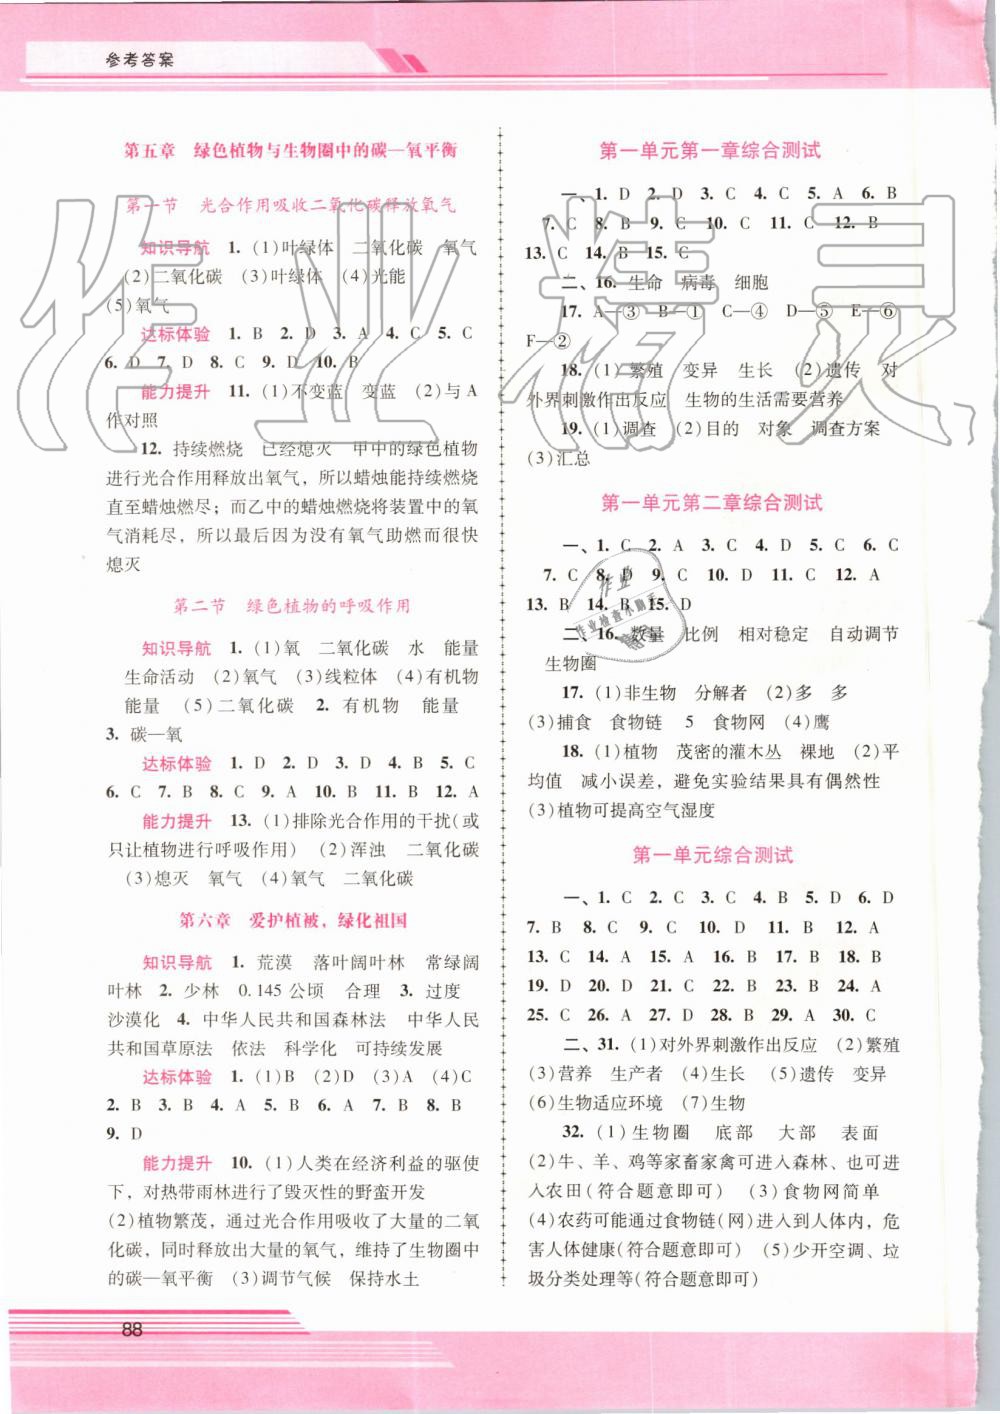 参考答案
第五章 绿色植物与生物圈中的碳—氧平衡
第一节 光合作用吸收二氧化碳释放氧气
知识导航 1. (1)叶绿体 二氧化碳 氧气
(2)二氧化碳 (3)叶绿体 (4)光能
(5)氧气
达标体验 1. B 2. D 3. A 4. C 5. C
6. D 7. D 8. C 9. D 10. B
能力提升 11. (1)不变蓝 变蓝 (2)与A
作对照
12. 持续燃烧 已经熄灭 甲中的绿色植物
进行光合作用释放出氧气，所以蜡烛能持续燃烧
直至蜡烛燃尽；而乙中的蜡烛燃烧将装置中的氧
气消耗尽，所以最后因为没有氧气助燃而很快
熄灭
第二节 绿色植物的呼吸作用
知识导航 1. (1)氧 二氧化碳 水 能量
生命活动 (2)氧气 (3)线粒体 (4)有机物
能量 (5)二氧化碳 2. 有机物 能量
3. 碳—氧
达标体验 1. D 2. D 3. D 4. B 5. C
6. C 7. B 8. C 9. A 10. B 11. B 12. A
能力提升 13. (1)排除光合作用的干扰(或
只让植物进行呼吸作用) (2)浑浊 二氧化碳
(3)熄灭 氧气 (4)氧气 二氧化碳
第六章 爱护植被，绿化祖国
知识导航 1. 荒漠 落叶阔叶林 常绿阔
叶林 2. 少林 0.145公顷 合理 3. 过度
沙漠化 4. 中华人民共和国森林法 中华人民
共和国草原法 依法 科学化 可持续发展
达标体验 1. (1)B (2)D (3)A (4)C
2. B 3. B 4. A 5. B 6. A 7. B 8. B
9. D
能力提升 10. (1)人类在经济利益的驱使
下，对热带雨林进行了毁灭性的野蛮开发
(2)植物繁茂，通过光合作用吸收了大量的二氧
化碳，同时释放出大量的氧气，维持了生物圈中
的碳—氧平衡 (3)调节气候 保持水土
88
第一单元第一章综合测试
一、1. D 2. D 3. C 4. C 5. A 6. B
7. C 8. B 9. C 10. C 11. C 12. B
13. C 14. B 15. C
二、16. 生命 病毒 细胞
17. A—③ B—① C—④ D—⑤ E—⑥
F—②
18. (1)繁殖 变异 生长 (2)遗传 对
外界刺激作出反应 生物的生活需要营养
19. (1)调查 (2)目的 对象 调查方案
(3)汇总
第一单元第二章综合测试
一、1. C 2. A 3. C 4. D 5. C 6. C
7. C 8. D 9. C 10. D 11. C 12. A
13. B 14. B 15. D
二、16. 数量 比例 相对稳定 自动调节
生物圈
17. (1)非生物 分解者 (2)多 多
(3)捕食 食物链 5 食物网 (4)鹰
18. (1)植物 茂密的灌木丛 裸地 (2)平
均值 减小误差，避免实验结果具有偶然性
(3)植物可提高空气湿度
第一单元综合测试
一、1. C 2. C 3. C 4. B 5. D 6. D
7. B 8. C 9. C 10. D 11. B 12. A
13. C 14. A 15. A 16. C 17. A 18. B
19. D 20. D 21. C 22. B 23. B 24. A
25. C 26. A 27. D 28. B 29. A 30. C
二、31. (1)对外界刺激作出反应 (2)繁殖
(3)营养 生产者 (4)生长 (5)遗传 变异
(6)生物适应环境 (7)生物
32. (1)生物圈 底部 大部 表面
(2)牛、羊、鸡等家畜家禽可进入森林、也可进
入农田(符合题意即可) (3)食物网简单
(4)农药可能通过食物链(网)进入到人体内，危
害人体健康(符合题意即可) (5)少开空调、垃
圾分类处理等(符合题意即可)
作业精灵
作业
作业检查小助手